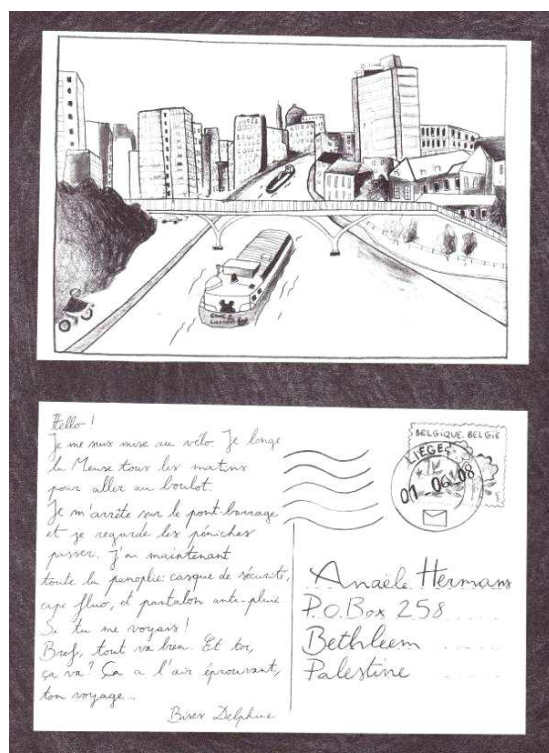 Hello !
Je me suis mise au vélo. Je longe
la Meuse tous les matins
pour aller au boulot.
Je m'arrête sur le pont-barrage
et je regarde les péniches
passer. J'ai maintenant
toute la panoplie: casque de sécurité,
cape fluo, et pantalon anti-pluie.
Si tu me voyais !
Bref, tout va bien. Et toi,
ça va ? Ça a l'air éprouvant,
ton voyage...
Bises Delphine
BELGIQUE BELGIE
LIEGE
01-06-08
Anaële Hermans
P.O.Box 258
Bethleem
Palestine